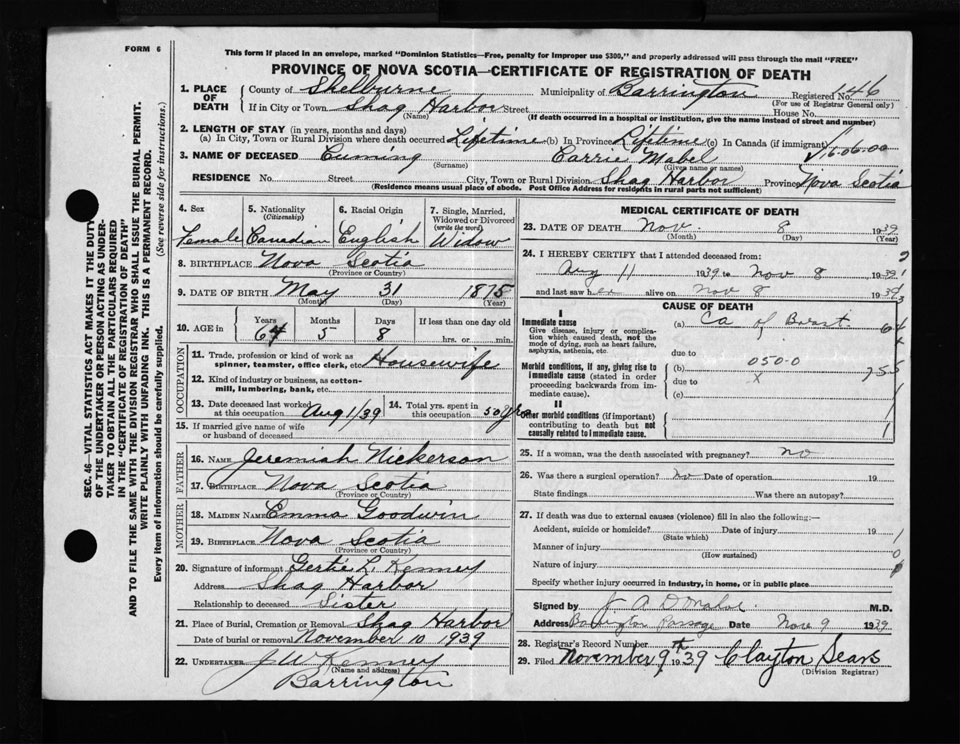 FORM 6
This form if placed in an envelope, marked "Dominion Statistics—Free, penalty for improper use $300," and properly addressed will pass through the mail "FREE"
PROVINCE OF NOVA SCOTIA—CERTIFICATE OF REGISTRATION OF DEATH
SEC. 46—VITAL STATISTICS ACT MAKES IT THE DUTY
OF THE UNDERTAKER OR PERSON ACTING AS UNDER-
TAKER TO OBTAIN ALL THE PARTICULARS REQUIRED
IN THE "CERTIFICATE OF REGISTRATION OF DEATH"
AND TO FILE THE SAME WITH THE DIVISION REGISTRAR WHO SHALL ISSUE THE BURIAL PERMIT.
WRITE PLAINLY WITH UNFADING INK. THIS IS A PERMANENT RECORD.
Every item of information should be carefully supplied. (See reverse side for instructions.)
1. PLACE OF DEATH
County of Shelburne Municipality of Barrington Registered No. 46
(For use of Registrar General only)
If in City or Town Shag Harbor Street House No.
(Name) (If death occurred in a hospital or institution, give the name instead of street and number)
2. LENGTH OF STAY (in years, months and days)
(a) In City, Town or Rural Division where death occurred Lifetime (b) In Province Lifetime (c) In Canada (if immigrant)
16.06.00
3. NAME OF DECEASED Cuming Carrie Mabel
(Surname) (Given name or names)
RESIDENCE No. Street City, Town or Rural Division Shag Harbor Province Nova Scotia
(Residence means usual place of abode. Post Office Address for residents in rural parts not sufficient)
4. Sex 5. Nationality (Citizenship) 6. Racial Origin 7. Single, Married, Widowed or Divorced (write the word)
Female Canadian English Widow
8. BIRTHPLACE Nova Scotia
(Province or Country)
9. DATE OF BIRTH May 31 1875
(Month) (Day) (Year)
10. AGE in Years Months Days If less than one day old
64 5 8 hrs. or min.
OCCUPATION
11. Trade, profession or kind of work as spinner, teamster, office clerk, etc. Housewife
12. Kind of industry or business, as cotton-mill, lumbering, bank, etc.
13. Date deceased last worked at this occupation Aug 1/39 14. Total yrs. spent in this occupation 50 yrs
15. If married give name of wife or husband of deceased
FATHER
16. NAME Jeremiah Nickerson
17. BIRTHPLACE Nova Scotia
(Province or Country)
MOTHER
18. MAIDEN NAME Emma Goodwin
19. BIRTHPLACE Nova Scotia
(Province or Country)
20. Signature of informant Gertie L. Kenney
Address Shag Harbor
Relationship to deceased Sister
21. Place of Burial, Cremation or Removal Shag Harbor
Date of burial or removal November 10 1939
22. UNDERTAKER J W Kenney
(Name and address)
Barrington
MEDICAL CERTIFICATE OF DEATH
23. DATE OF DEATH Nov. 8 1939
(Month) (Day) (Year)
24. I HEREBY CERTIFY that I attended deceased from:
Aug 11 1939 to Nov 8 1939
and last saw her alive on Nov 8 1939
CAUSE OF DEATH
I
Immediate cause (a) Ca of Brest.
Give disease, injury or complication which caused death, not the mode of dying, such as heart failure, asphyxia, asthenia, etc.
due to
Morbid conditions, if any, giving rise to immediate cause (stated in order proceeding backwards from immediate cause). (b) 050.0
due to X
(c)
II
Other morbid conditions (if important) contributing to death but not causally related to immediate cause.
25. If a woman, was the death associated with pregnancy? no
26. Was there a surgical operation? No Date of operation 19
State findings Was there an autopsy?
27. If death was due to external causes (violence) fill in also the following:—
Accident, suicide or homicide? Date of injury 19
(State which)
Manner of injury
(How sustained)
Nature of injury
Specify whether injury occurred in industry, in home, or in public place
Signed by M.D.
Address Barrington Passage Date Nov 9 1939
28. Registrar's Record Number
29. Filed November 9th 1939 Clayton Sears
(Division Registrar)